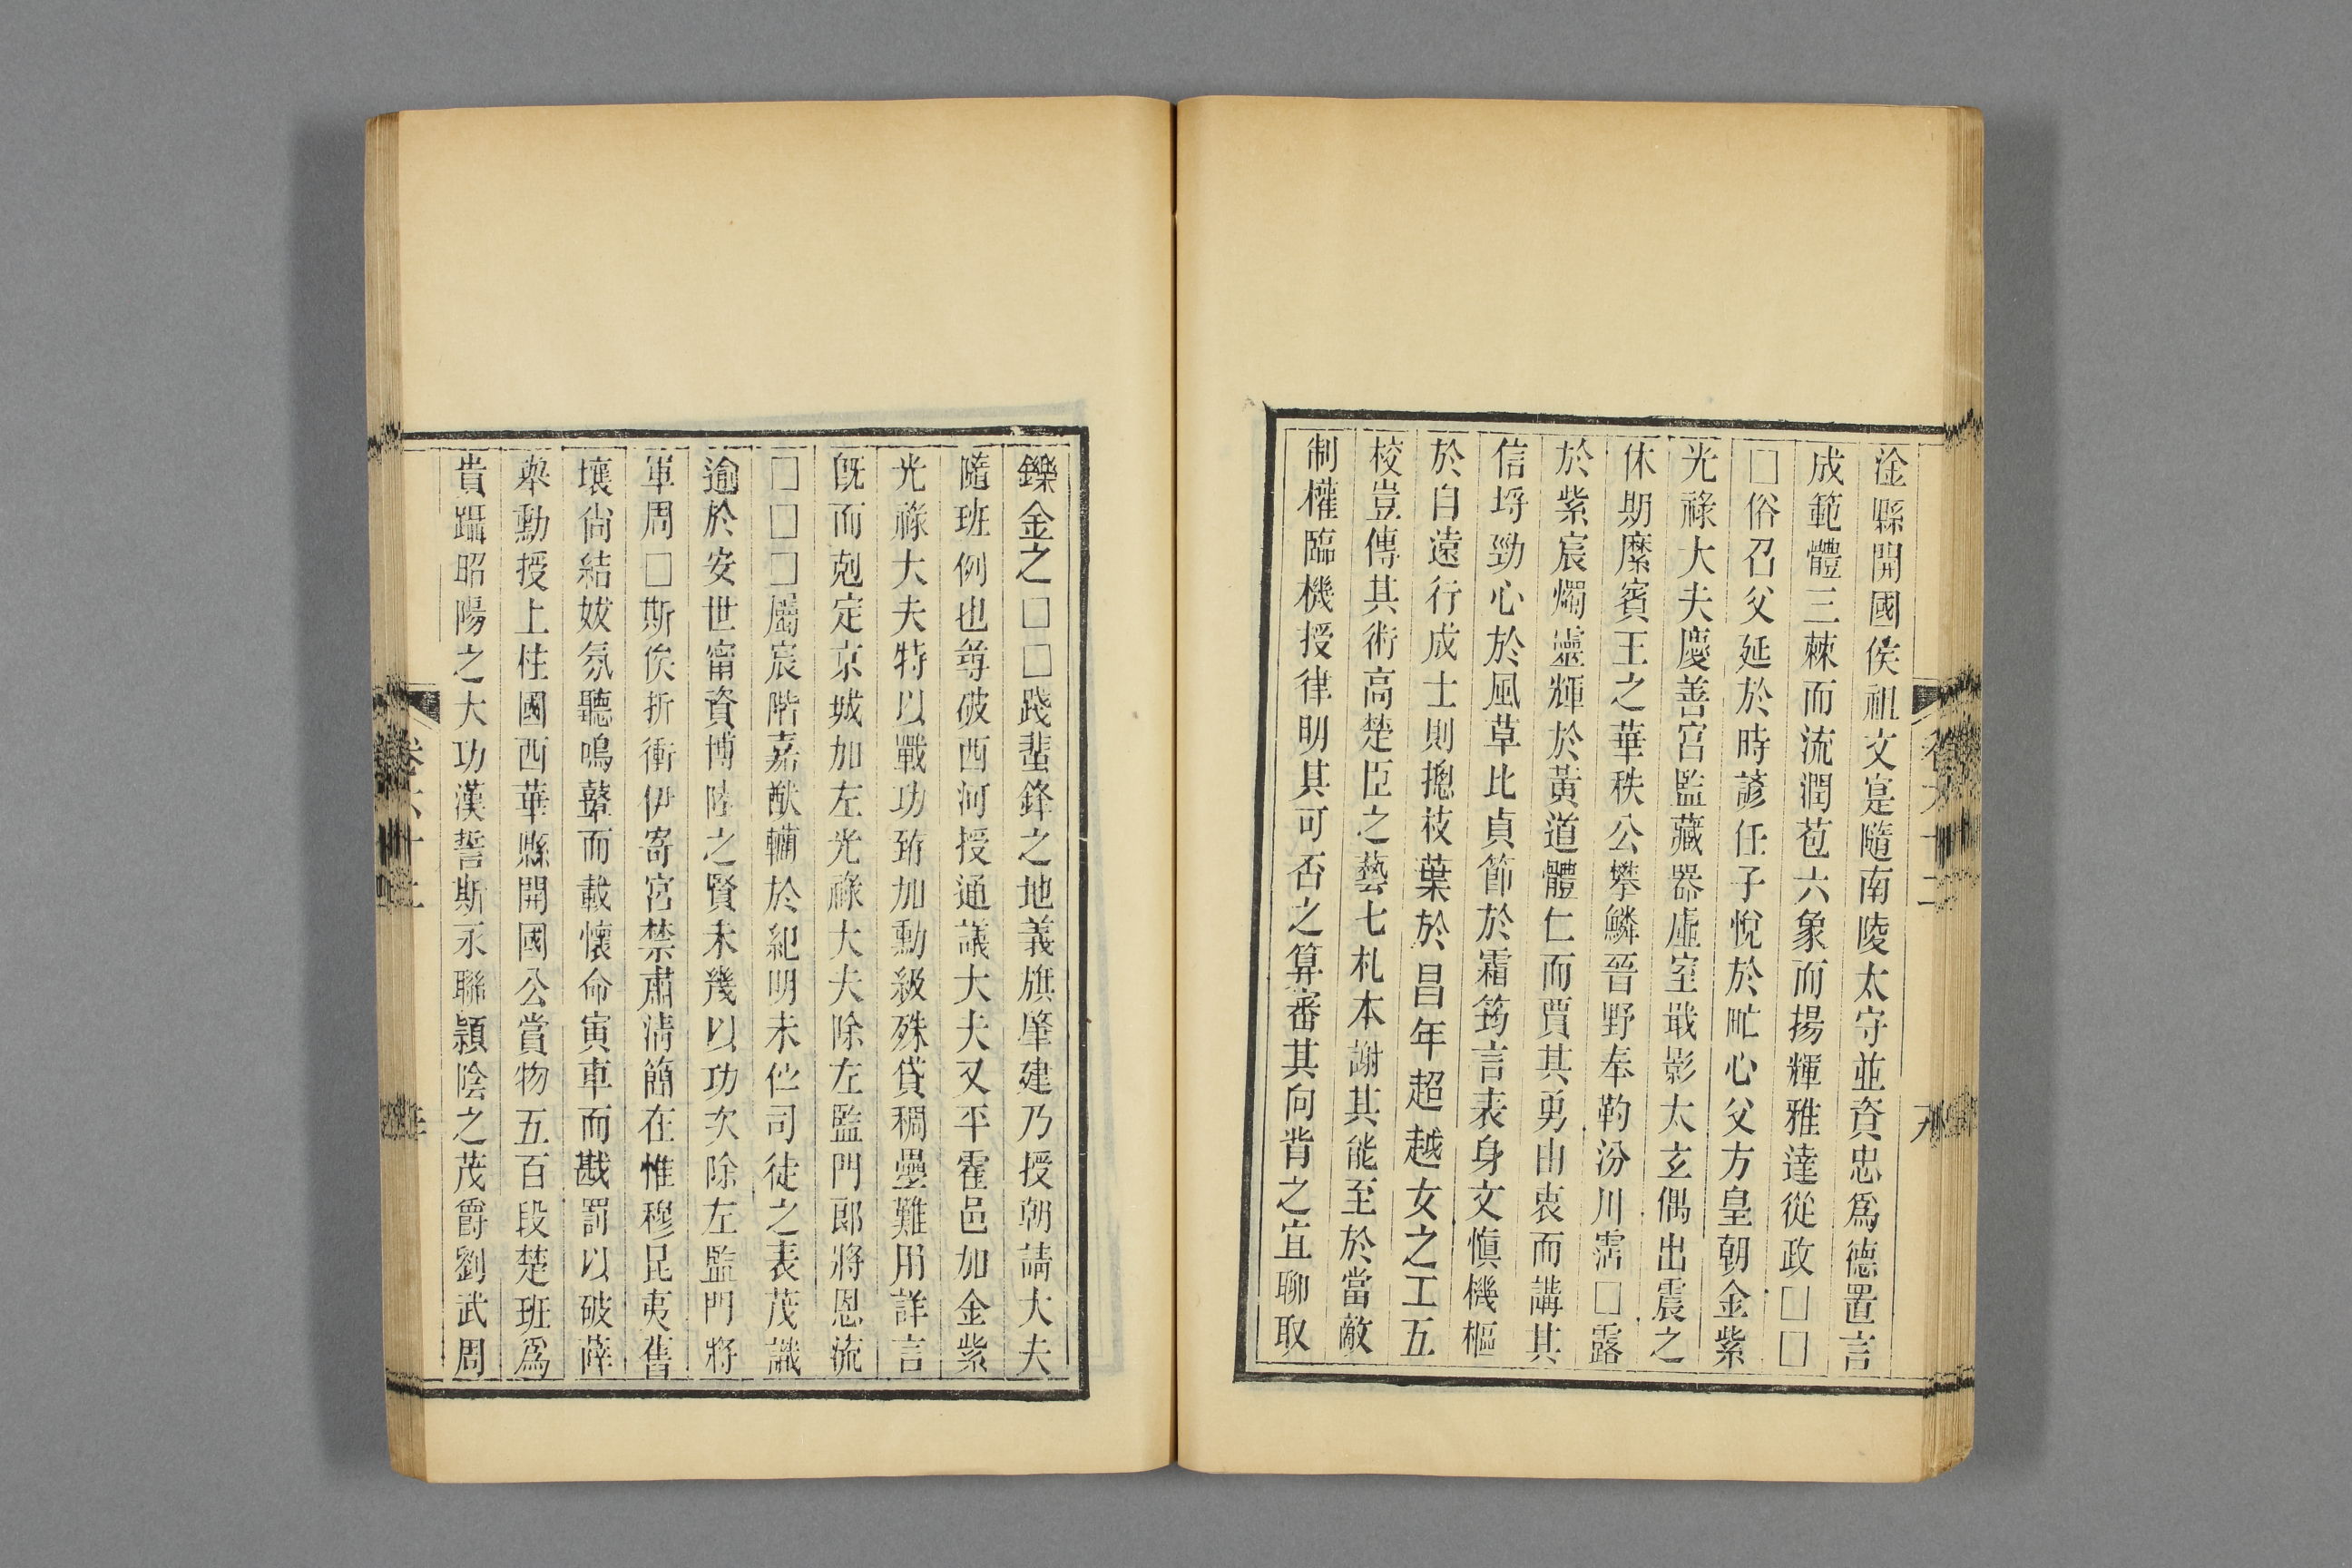 淦縣開國侯祖文寔隨南陵太守並資忠爲德置言
成範體三棘而流潤苞六象而揚輝雅達從政□□
□俗召父延於時諺任子悅於甿心父方皇朝金紫
光祿大夫慶善宮監藏器虛室戢影太玄偶出震之
休期縻賓王之華秩公攀鱗晉野奉靮汾川霈□露
於紫宸燭靈輝於黃道體仁而賈其勇由衷而講其
信埒勁心於風草比貞節於霜筠言表身文愼機樞
於自遠行成士則摠枝葉於昌年超越女之工五
校豈傳其術高楚臣之藝七札本謝其能至於當敵
制權臨機授律明其可否之算審其向背之宜聊取
卷六十二
九
鑠金之□□踐蜚鋒之地義旗肇建乃授朝請大夫
隨班例也尊破西河授通議大夫又平霍邑加金紫
光祿大夫特以戰功旃加勳級殊貸稠疊難用詳言
旣而剋定京城加左光祿大夫除左監門郎將恩流
□□□屬宸階嘉猷輶於紀明未仕司徒之表茂識
逾於安世甯資博陸之賢未幾以功次除左監門將
軍周□斯俟折衝伊寄宮禁肅淸簡在惟穆昆夷舊
壤尙結妭氛聽鳴鼙而載懷命寅車而戡罰以破薛
舉勳授上柱國西華縣開國公賞物五百段楚班爲
貴躡昭陽之大功漢誓斯永聯潁陰之茂爵劉武周
卷六十二